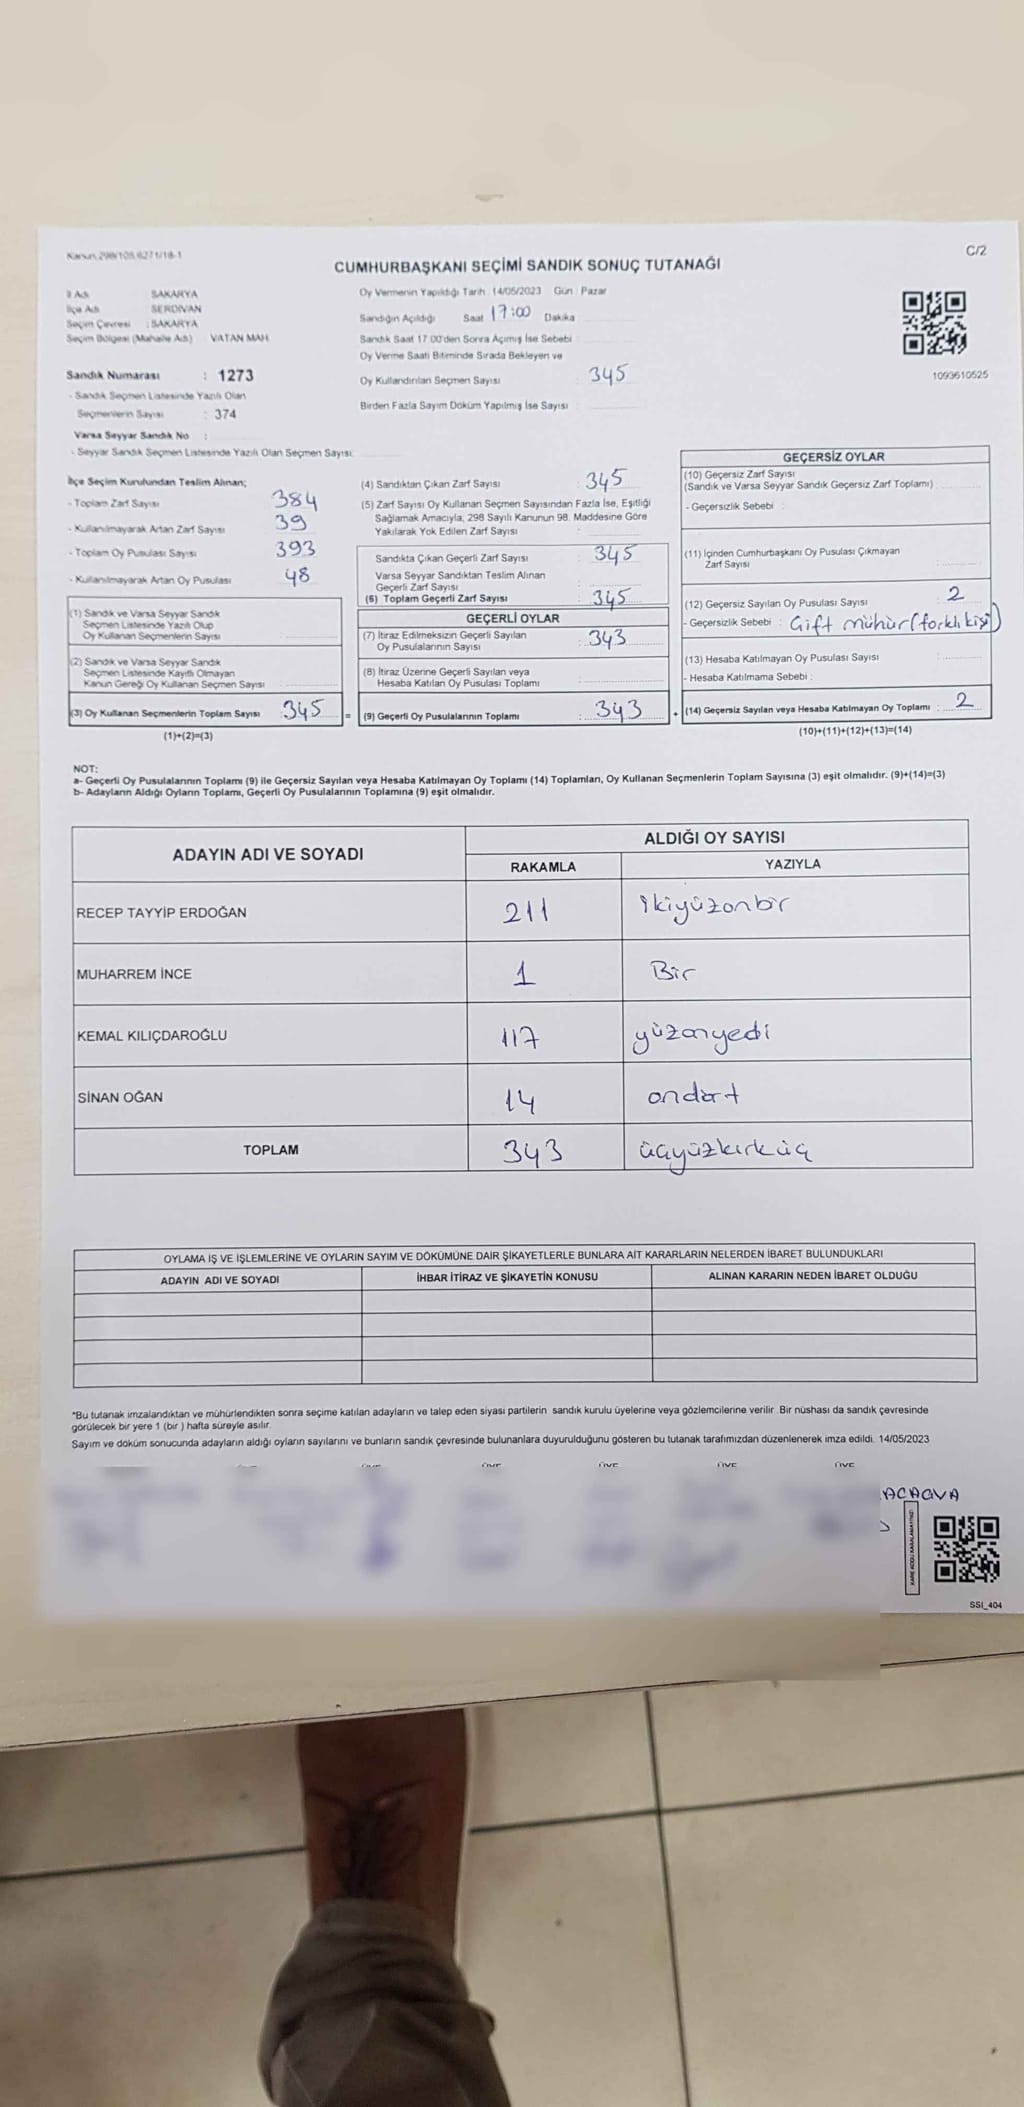 Kanun 298/105,6271/18-1
C/2
CUMHURBAŞKANI SEÇİMİ SANDIK SONUÇ TUTANAĞI
İl Adı SAKARYA
İlçe Adı SERDİVAN
Seçim Çevresi : SAKARYA
Seçim Bölgesi (Mahalle Adı) VATAN MAH.
Sandık Numarası : 1273
- Sandık Seçmen Listesinde Yazılı Olan
Seçmenlerin Sayısı : 374
Varsa Seyyar Sandık No :
- Seyyar Sandık Seçmen Listesinde Yazılı Olan Seçmen Sayısı:
Oy Vermenin Yapıldığı Tarih : 14/05/2023 Gün : Pazar
Sandığın Açıldığı Saat 17:00 Dakika
Sandık Saat 17:00'den Sonra Açımış İse Sebebi :
Oy Verme Saati Bitiminde Sırada Bekleyen ve
Oy Kullandırılan Seçmen Sayısı : 345
Birden Fazla Sayım Döküm Yapılmış İse Sayısı :
1093610525
İlçe Seçim Kurulundan Teslim Alınan;
- Toplam Zarf Sayısı 384
- Kullanılmayarak Artan Zarf Sayısı 39
- Toplam Oy Pusulası Sayısı 393
- Kullanılmayarak Artan Oy Pusulası 48
(1) Sandık ve Varsa Seyyar Sandık
Seçmen Listesinde Yazılı Olup
Oy Kullanan Seçmenlerin Sayısı :
(2) Sandık ve Varsa Seyyar Sandık
Seçmen Listesinde Kayıtlı Olmayan
Kanun Gereği Oy Kullanan Seçmen Sayısı :
(3) Oy Kullanan Seçmenlerin Toplam Sayısı : 345
(1)+(2)=(3)
(4) Sandıktan Çıkan Zarf Sayısı : 345
(5) Zarf Sayısı Oy Kullanan Seçmen Sayısından Fazla İse, Eşitliği
Sağlamak Amacıyla, 298 Sayılı Kanunun 98. Maddesine Göre
Yakılarak Yok Edilen Zarf Sayısı :
Sandıkta Çıkan Geçerli Zarf Sayısı : 345
Varsa Seyyar Sandıktan Teslim Alınan
Geçerli Zarf Sayısı :
(6) Toplam Geçerli Zarf Sayısı : 345
GEÇERLİ OYLAR
(7) İtiraz Edilmeksizin Geçerli Sayılan
Oy Pusulalarının Sayısı : 343
(8) İtiraz Üzerine Geçerli Sayılan veya
Hesaba Katılan Oy Pusulası Toplamı :
= (9) Geçerli Oy Pusulalarının Toplamı : 343
GEÇERSİZ OYLAR
(10) Geçersiz Zarf Sayısı
(Sandık ve Varsa Seyyar Sandık Geçersiz Zarf Toplamı) :
- Geçersizlik Sebebi :
(11) İçinden Cumhurbaşkanı Oy Pusulası Çıkmayan
Zarf Sayısı :
(12) Geçersiz Sayılan Oy Pusulası Sayısı : 2
- Geçersizlik Sebebi : Çift mühür (farklı kişi)
(13) Hesaba Katılmayan Oy Pusulası Sayısı :
- Hesaba Katılmama Sebebi :
+ (14) Geçersiz Sayılan veya Hesaba Katılmayan Oy Toplamı : 2
(10)+(11)+(12)+(13)=(14)
NOT:
a- Geçerli Oy Pusulalarının Toplamı (9) ile Geçersiz Sayılan veya Hesaba Katılmayan Oy Toplamı (14) Toplamları, Oy Kullanan Seçmenlerin Toplam Sayısına (3) eşit olmalıdır. (9)+(14)=(3)
b- Adayların Aldığı Oyların Toplamı, Geçerli Oy Pusulalarının Toplamına (9) eşit olmalıdır.
ADAYIN ADI VE SOYADI
ALDIĞI OY SAYISI
RAKAMLA YAZIYLA
RECEP TAYYİP ERDOĞAN 211 ikiyüzonbir
MUHARREM İNCE 1 Bir
KEMAL KILIÇDAROĞLU 117 yüzonyedi
SİNAN OĞAN 14 ondört
TOPLAM 343 üçyüzkırküç
OYLAMA İŞ VE İŞLEMLERİNE VE OYLARIN SAYIM VE DÖKÜMÜNE DAİR ŞİKAYETLERLE BUNLARA AİT KARARLARIN NELERDEN İBARET BULUNDUKLARI
ADAYIN ADI VE SOYADI İHBAR İTİRAZ VE ŞİKAYETİN KONUSU ALINAN KARARIN NEDEN İBARET OLDUĞU
*Bu tutanak imzalandıktan ve mühürlendikten sonra seçime katılan adayların ve talep eden siyasi partilerin sandık kurulu üyelerine veya gözlemcilerine verilir. Bir nüshası da sandık çevresinde
görülecek bir yere 1 (bir ) hafta süreyle asılır.
Sayım ve döküm sonucunda adayların aldığı oyların sayılarını ve bunların sandık çevresinde bulunanlara duyurulduğunu gösteren bu tutanak tarafımızdan düzenlenerek imza edildi. 14/05/2023
ÜYE ÜYE ÜYE ÜYE ÜYE
KARE KODU KARALAMAYINIZ!
SSI_404